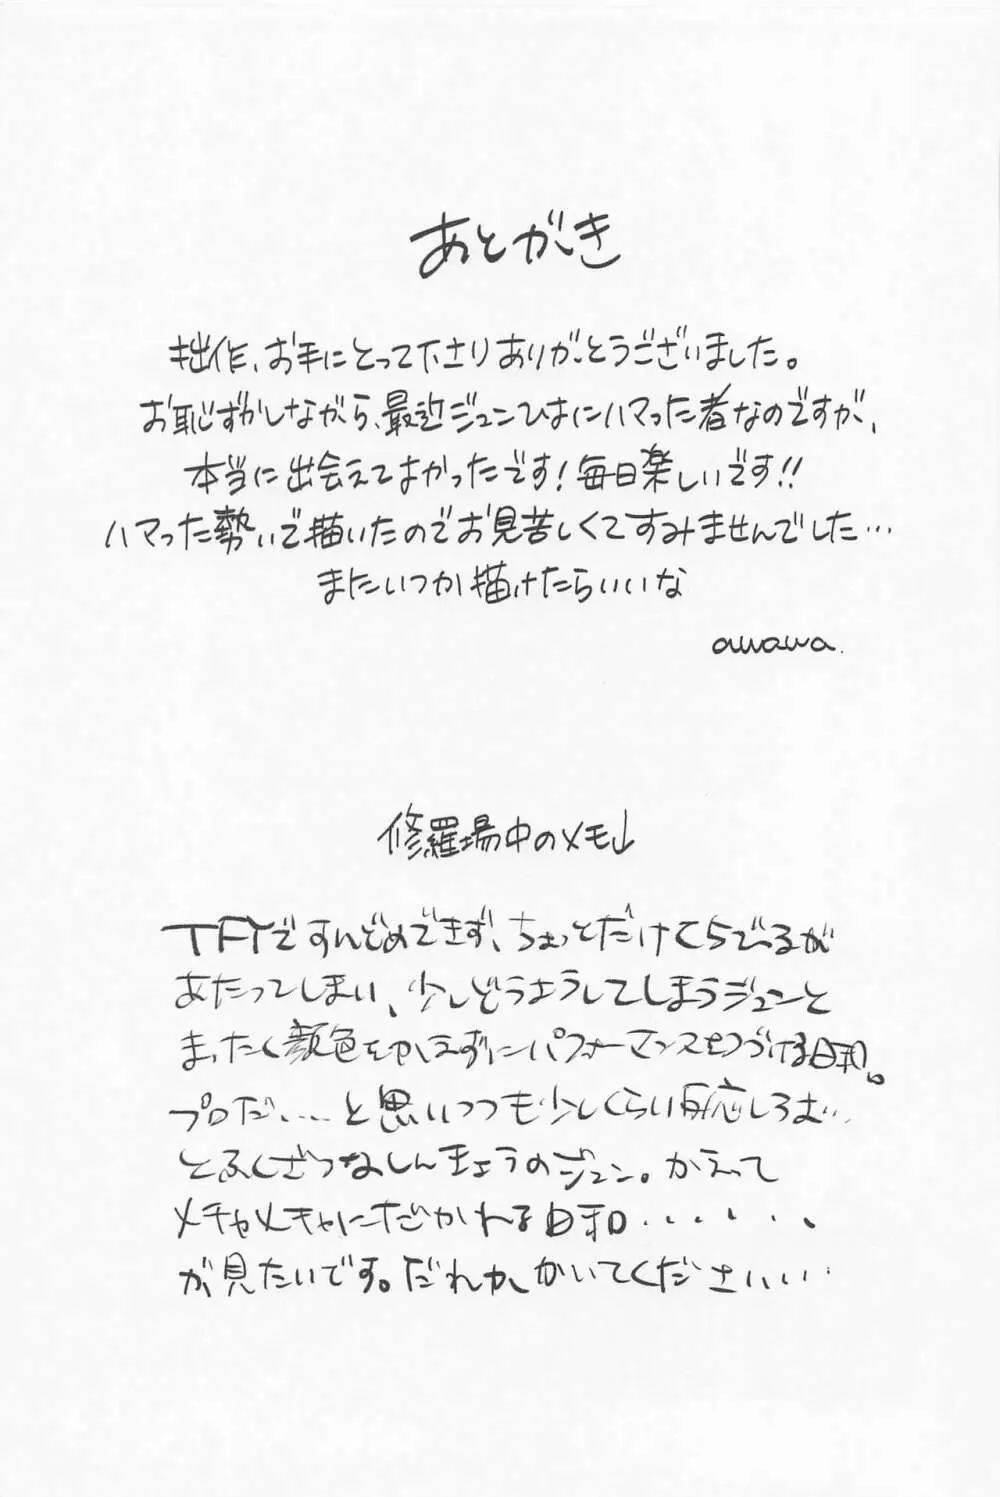 あとがき
拙作、お手にとって下さりありがとうございました。
お恥ずかしながら、最近ジュンひよにハマった者なのですが、
本当に出会えてよかったです！毎日楽しいです!!
ハマった勢いで描いたのでお見苦しくてすみませんでした…
またいつか描けたらいいな
awawa.
修羅場中のメモ↓
TFYですんどめできず、ちょっとだけくちびるが
あたってしまい、少しどうようしてしまうジュンと
まったく顔色をかえずにパフォーマンスをつづける日和。
プロだ…、と思いつつも少しくらい反応しろよ…
とふくざつなしんきょうのジュン。かえって
メチャメチャにだかれる日和・・・・・・・
が見たいです。だれか、かいてください…